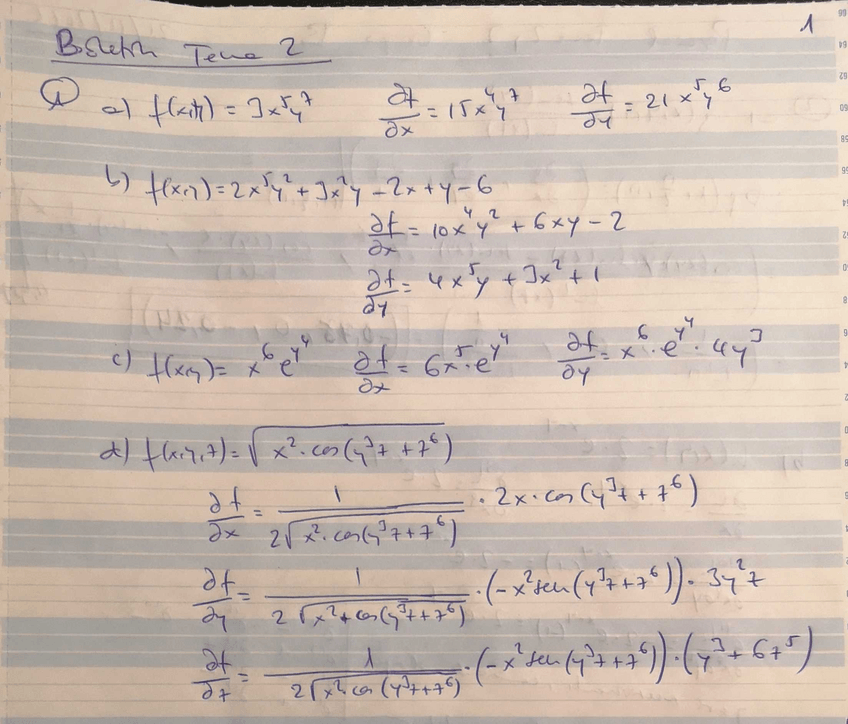 1
Boletín Tema 2
① a) f(x,y) = 3x⁵y⁷ ∂f/∂x = 15x⁴y⁷ ∂f/∂y = 21x⁵y⁶
b) f(x,y) = 2x⁵y² + 3x²y - 2x + y - 6
∂f/∂x = 10x⁴y² + 6xy - 2
∂f/∂y = 4x⁵y + 3x² + 1
c) f(x,y) = x⁶e^(y⁴) ∂f/∂x = 6x⁵·e^(y⁴) ∂f/∂y = x⁶·e^(y⁴)·4y³
d) f(x,y,z) = √(x²·cos(y³z + z⁶))
∂f/∂x = 1/(2√(x²·cos(y³z+z⁶))) · 2x·cos(y³z + z⁶)
∂f/∂y = 1/(2√(x²+cos(y³z+z⁶))) · (-x²sen(y³z+z⁶)) · 3y²z
∂f/∂z = 1/(2√(x²cos(y³z+z⁶))) · (-x²sen(y³z+z⁶)) · (y³ + 6z⁵)